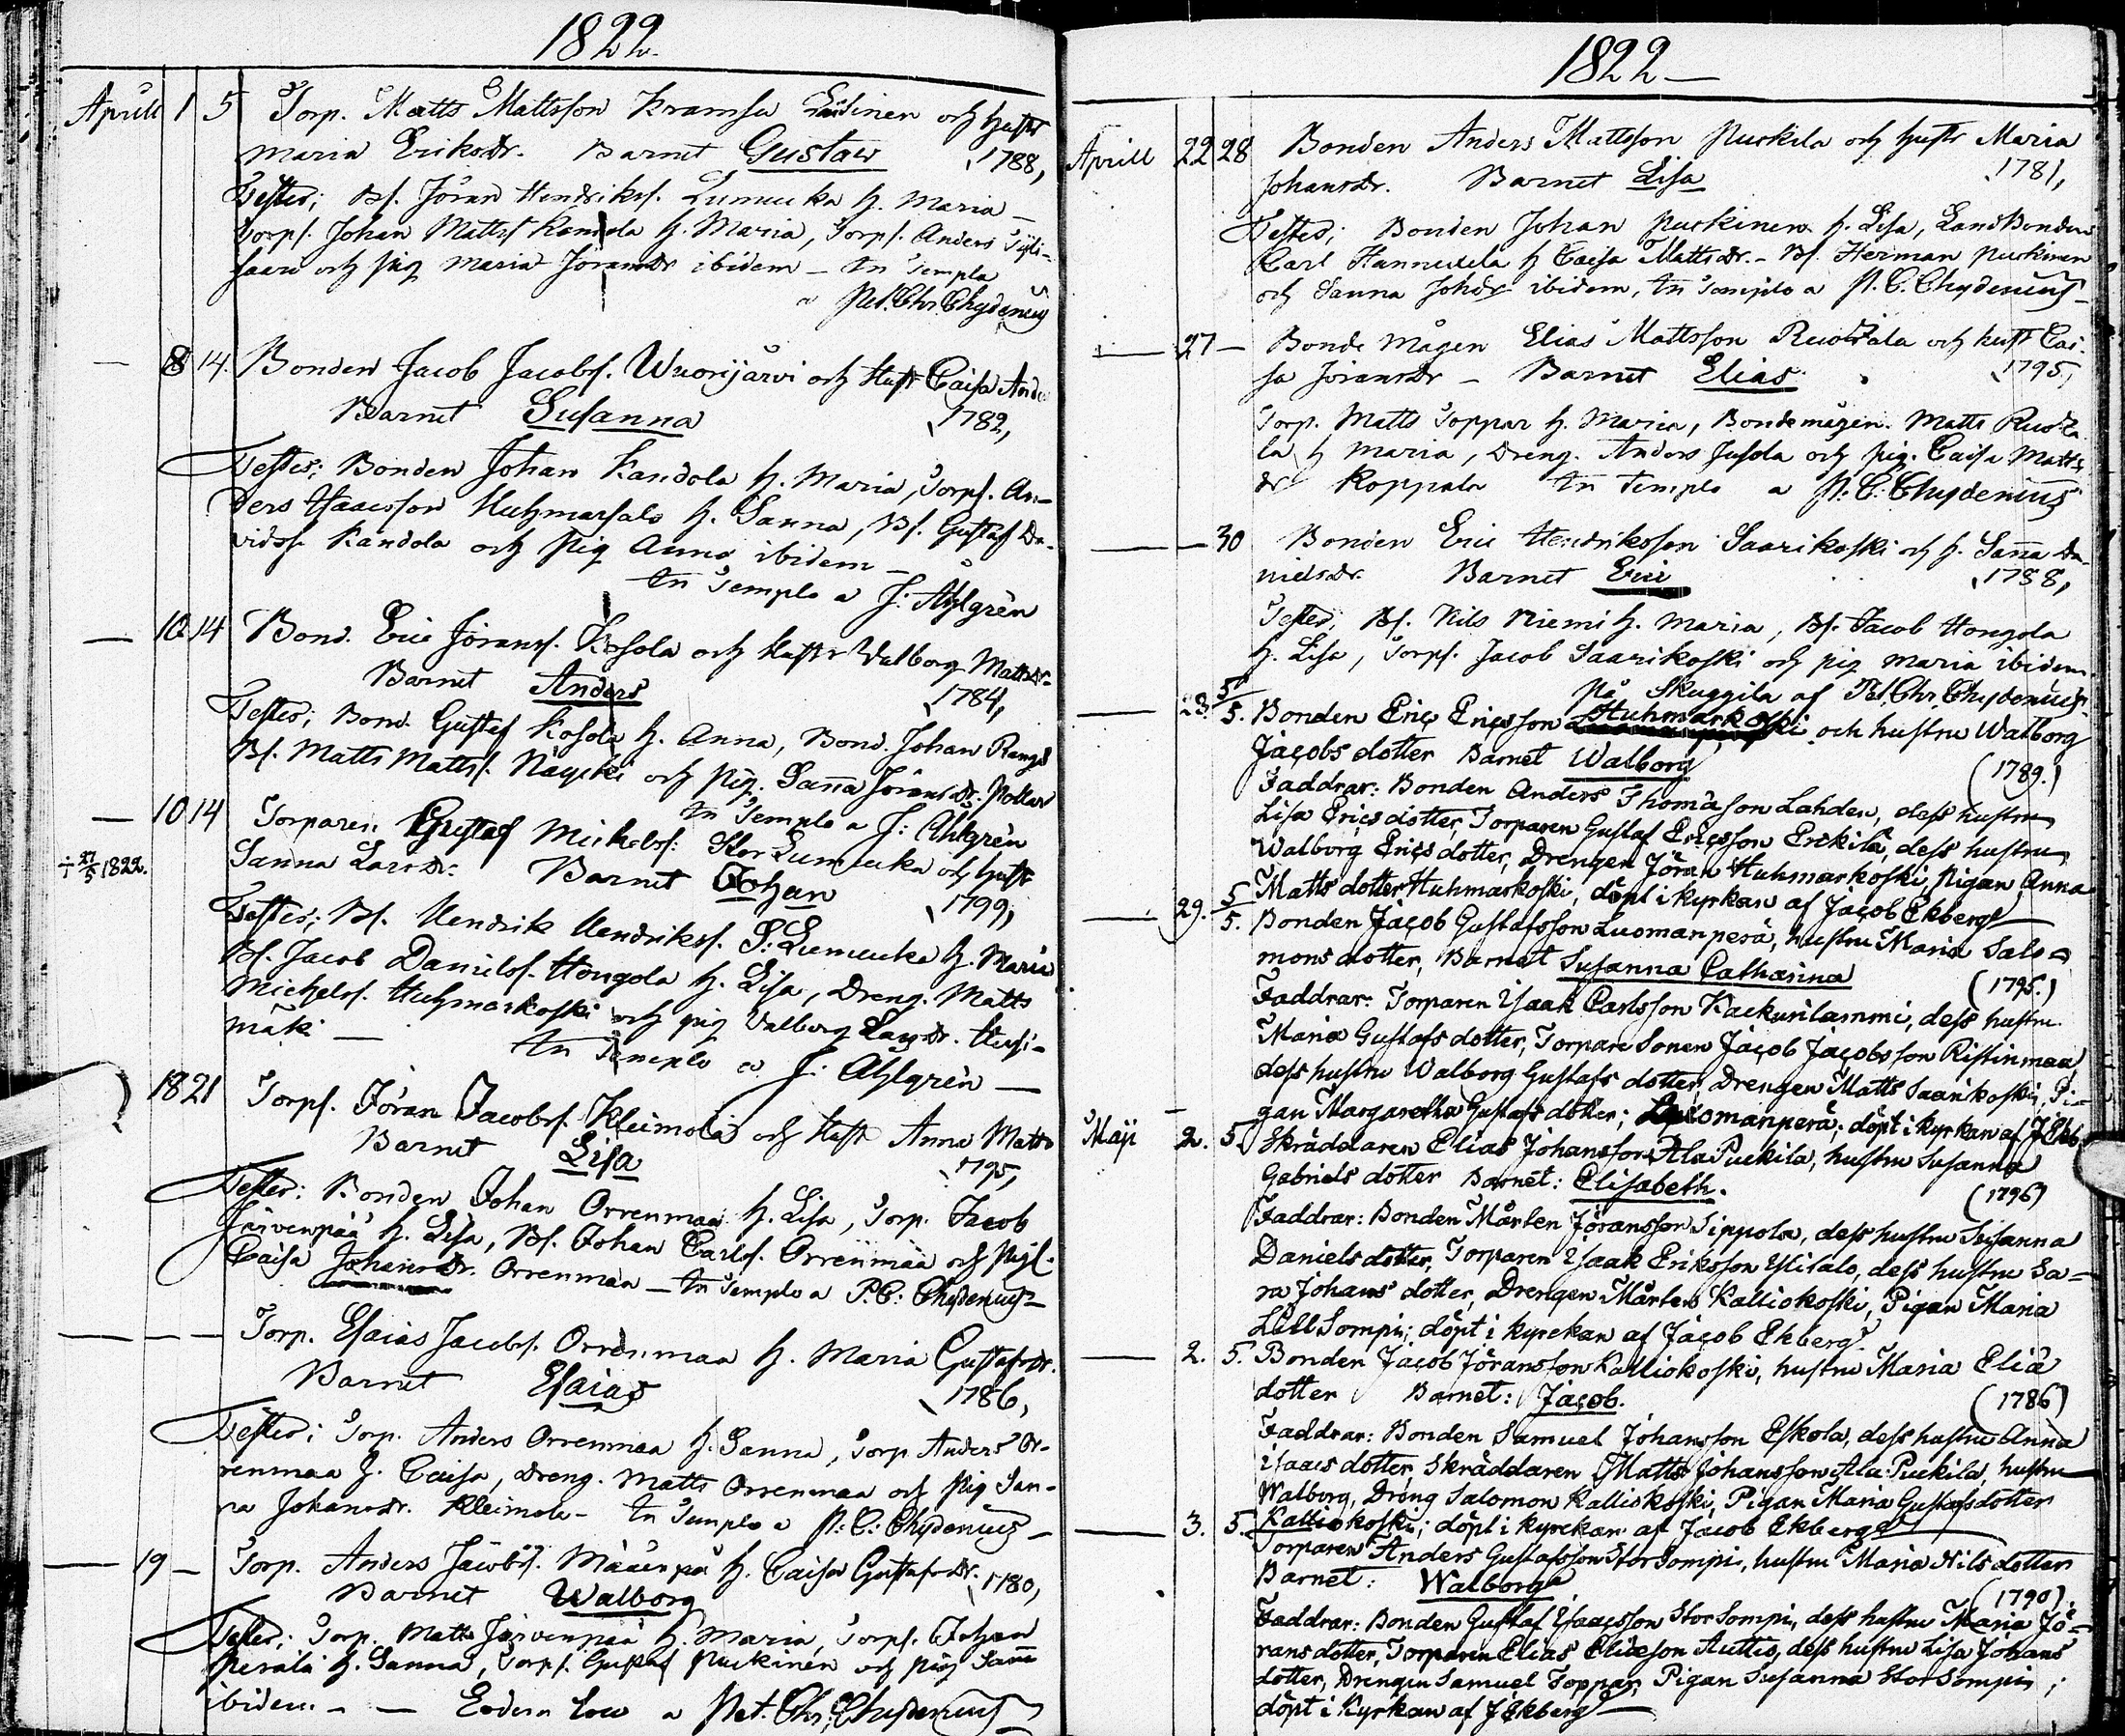 1822.
Aprill 1 5 Torp. Matts Mattsson Kramsu Lusinen och Hustr
Maria Eriksdr. Barnet Gustaw 1788,
Testes; Bs. Jöran Hendrikss. Lumukka h. Maria —
Torps. Johan Mattss Kandola h. Maria, Torps. Anders
saari och pig Maria Joransdr ibidem — In Templo
a Pet. Chr. Chydenius
— 8 14. Bonden Jacob Jacobs. Wuorijärvi och Hustr Caisa Andr
Barnet Susanna 1782,
Testes; Bonden Johan Kandola h. Maria, Torps. An-
ders Isaacsson Huhmarsalo h. Sanna, Bs. Gustaf Da-
vidss. Kandola och pig Anna ibidem —
In Templo a J: Ahlgrén
— 10 14 Bond. Eric Jörans. Kosola och Hustr Valborg Mattsdr.
Barnet Anders 1784,
Testes; Bond. Gustaf Kosola h. Anna, Bond. Johan Rango
Bs. Matts Mattss. Näycki och pig. Sanna Jöransdr. Pollari
In Templo a J: Ahlgrén
— 10 14 Torparen Gustaf Michelss: Stor Lumukka och Hustr
÷ 27/5 1822. Sanna Larsdr: Barnet Johan 1799,
Testes; Bs. Hendrik Hendrikss. S: Lumukka h. Maria
Bs. Jacob Daniels. Hongola h. Lisa, Dreng. Matts
Michelss. Huhmarkoski och pig Valborg Larsdr. Harsi-
mäki — In Templo a J: Ahlgrén —
18 21 Torps. Jöran Jacobss. Kleimola och Hustr Anna Matts
Barnet Lisa 1795,
Testes: Bonden Johan Orrenmaa h. Lisa, Torp. Jacob
Järvenpää h. Lisa, Bs. Johan Carlss. Orrenmaa och pigs.
Caisa Johansdr. Orrenmaa — In Templo a P. C: Chydenius —
— — — Torp. Esaias Jacobs. Orrenmaa h. Maria Gustafsdr.
Barnet Esaias 1786,
Testes; Torp. Anders Orrenmaa h. Sanna, Torp Anders Or-
renmaa h. Caisa, Dreng. Matts Orrenmaa och pig San-
na Johansdr. Kleimola — In Templo a P: C: Chydenius —
— 19 — Torp. Anders Jacobs. Mäenpää h. Caisa Gustafsdr. 1780,
Barnet Walborg
Testes; Torp. Matts Järvenpää h. Maria, Torps. Johan
Perälä h. Sanna, Torps. Gustaf Puskinen och pig Sanna
ibidem — — Eodem loco a Pet. Chr. Chydenius
1822 —
Aprill 22 28 Bonden Anders Mattsson Puskila och Hustr Maria
Johansdr. Barnet Lisa 1781,
Testes; Bonden Johan Puskinen h. Lisa, LandBonden
Carl Hannuxela h Caisa Mattsdr. — Bs. Herman Puskinen
och Sanna Johdr ibidem, In Templo a P. C. Chydenius —
— 27 — Bonde Mågen Elias Mattsson Ruotzala och hust Cai-
sa Joransdr — Barnet Elias 1795,
Torp. Matts Toppar h. Maria, Bondemågen. Matts Ruotza
la h Maria, Dreng. Anders Jusola och pig. Caisa Matts
dr Koppala In Templo a P: C: Chydenius
— — 30 Bonden Eric Hendriksson Saarikoski och h. Sanna Da
nielsdr. Barnet Eric 1788,
Testes; Bs. Nils Niemi h. Maria, Bs. Jacob Hongola
h. Lisa, Torps. Jacob Saarikoski och pig Maria ibidem
på Skuggila af Pet. Chr. Chydenius
— 23. 5/5. Bonden Eric Ericsson Huhmarkoski och hustru Walborg
Jacobs dotter Barnet Walborg (1789.)
Faddrar: Bonden Anders Thomasson Lahden, dess hustru
Lisa Erics dotter, Torparen Gustaf Ericsson Erckilä, dess hustru
Walborg Erics dotter, Drengen Jöran Huhmarkoski, Pigan Anna
Matts dotter Huhmarkoski, döpt i kyrkan af Jacob Ekberg
— 29. 5/5. Bonden Jacob Gustafsson Luomanperä, hustru Maria Salo=
mons dotter, Barnet Susanna Catharina (1795.)
Faddrar: Torparen Isaak Carlsson Kackurilammi, dess hustru
Maria Gustafs dotter, Torpare Sonen Jacob Jacobsson Ristinmaa,
dess hustru Walborg Gustafs dotter, Drengen Matts Saarikoski, Pi=
gan Margaretha Gustafs dotter; Luomanperä; döpt i kyrkan af J Ekb
Maji 2. 5. Skräddaren Elias Johansson Ala Puckila, hustru Susanna
Gabriels dotter Barnet: Elisabeth. (1796)
Faddrar: Bonden Mårten Jöransson Sippola, dess hustru Susanna
Daniels dotter, Torparen Isaak Eriksson Ylitalo, dess hustru Sa=
ra Johans dotter, Drengen Mårten Kalliokoski, Pigan Maria
Lill Sompi; döpt i kyrckan af Jacob Ekberg.
— 2. 5. Bonden Jacob Jöransson Kalliokoski, hustru Maria Eliæ
dotter Barnet: Jacob. (1786)
Faddrar: Bonden Samuel Johansson Eskola, dess hustru Anna
Isaacs dotter, Skräddaren Matts Johansson Ala Puckila, hustru
Walborg, Dräng Salomon Kalliokoski, Pigan Maria Gustafsdotter
Kalliokoski; döpt i kyrckan af Jacob Ekberg
— 3. 5. Torparen Anders Gustafsson Stor Sompi, hustru Maria Nils dotter
Barnet: Walborg (1790).
Faddrar: Bonden Gustaf Isaacsson Stor Sompi, dess hustru Maria Jö=
rans dotter, Torparen Elias Eliæson Auttio, dess hustru Lisa Johans
dotter, Drengen Samuel Toppar, Pigan Susanna Stor Sompi;
döpt i Kyrkan af J Ekberg —